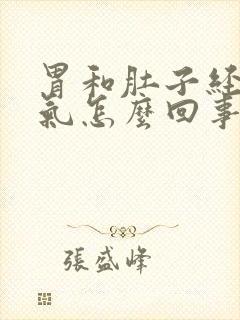 胃和肚子经
氣怎麼回事
張盛峰